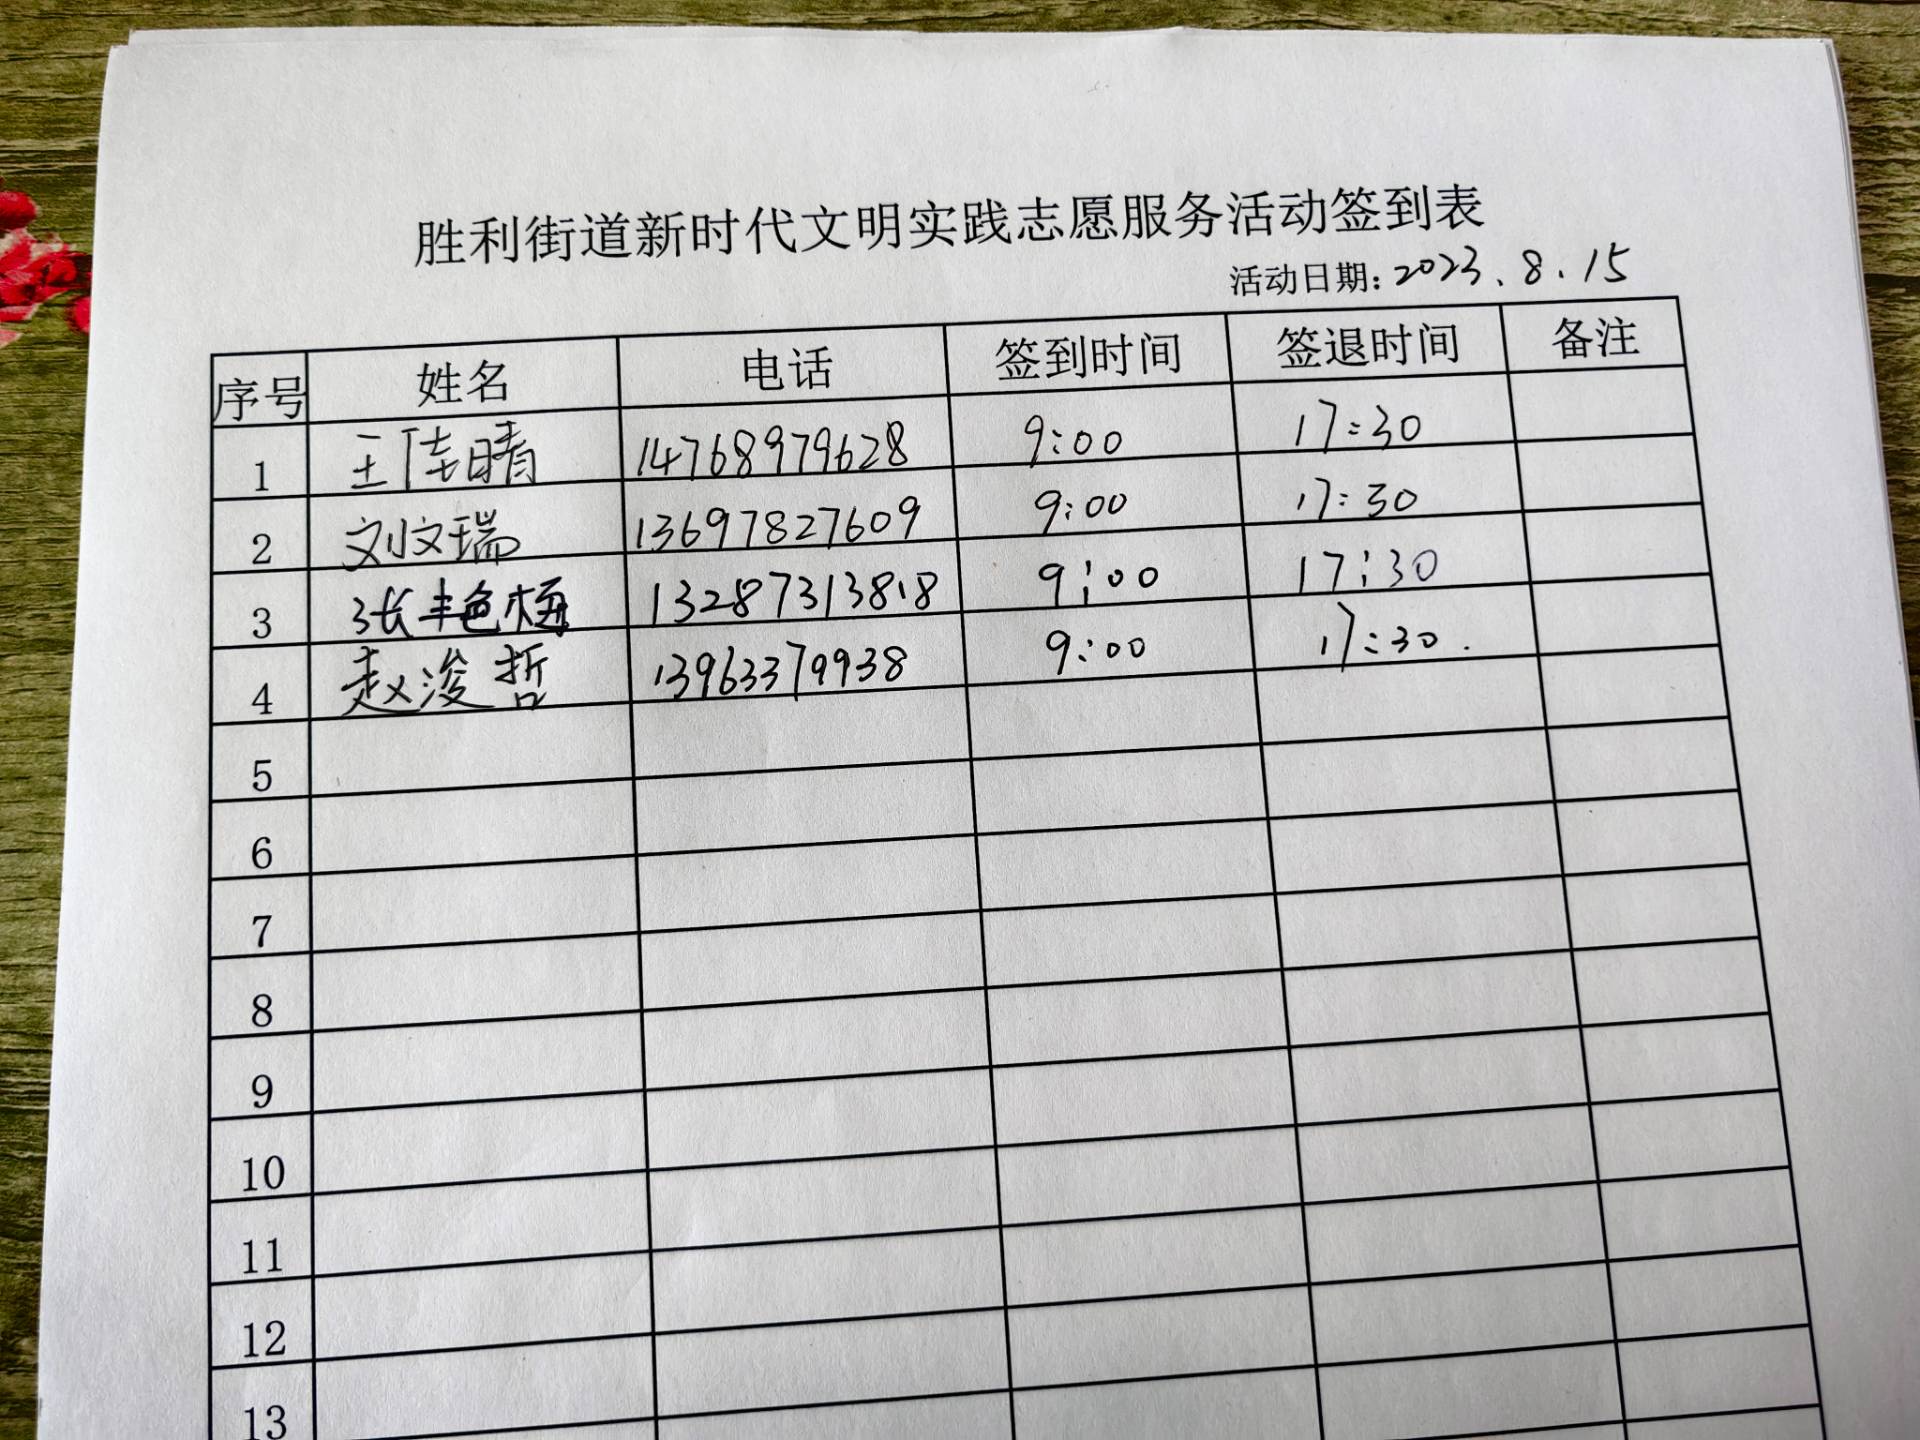 胜利街道新时代文明实践志愿服务活动签到表
活动日期：2023.8.15
序号 姓名 电话 签到时间 签退时间 备注
1 王佳晴 14768979628 9:00 17:30
2 刘文瑞 13697827609 9:00 17:30
3 张艳梅 13287313818 9:00 17:30
4 赵浚哲 13963379938 9:00 17:30.
5
6
7
8
9
10
11
12
13